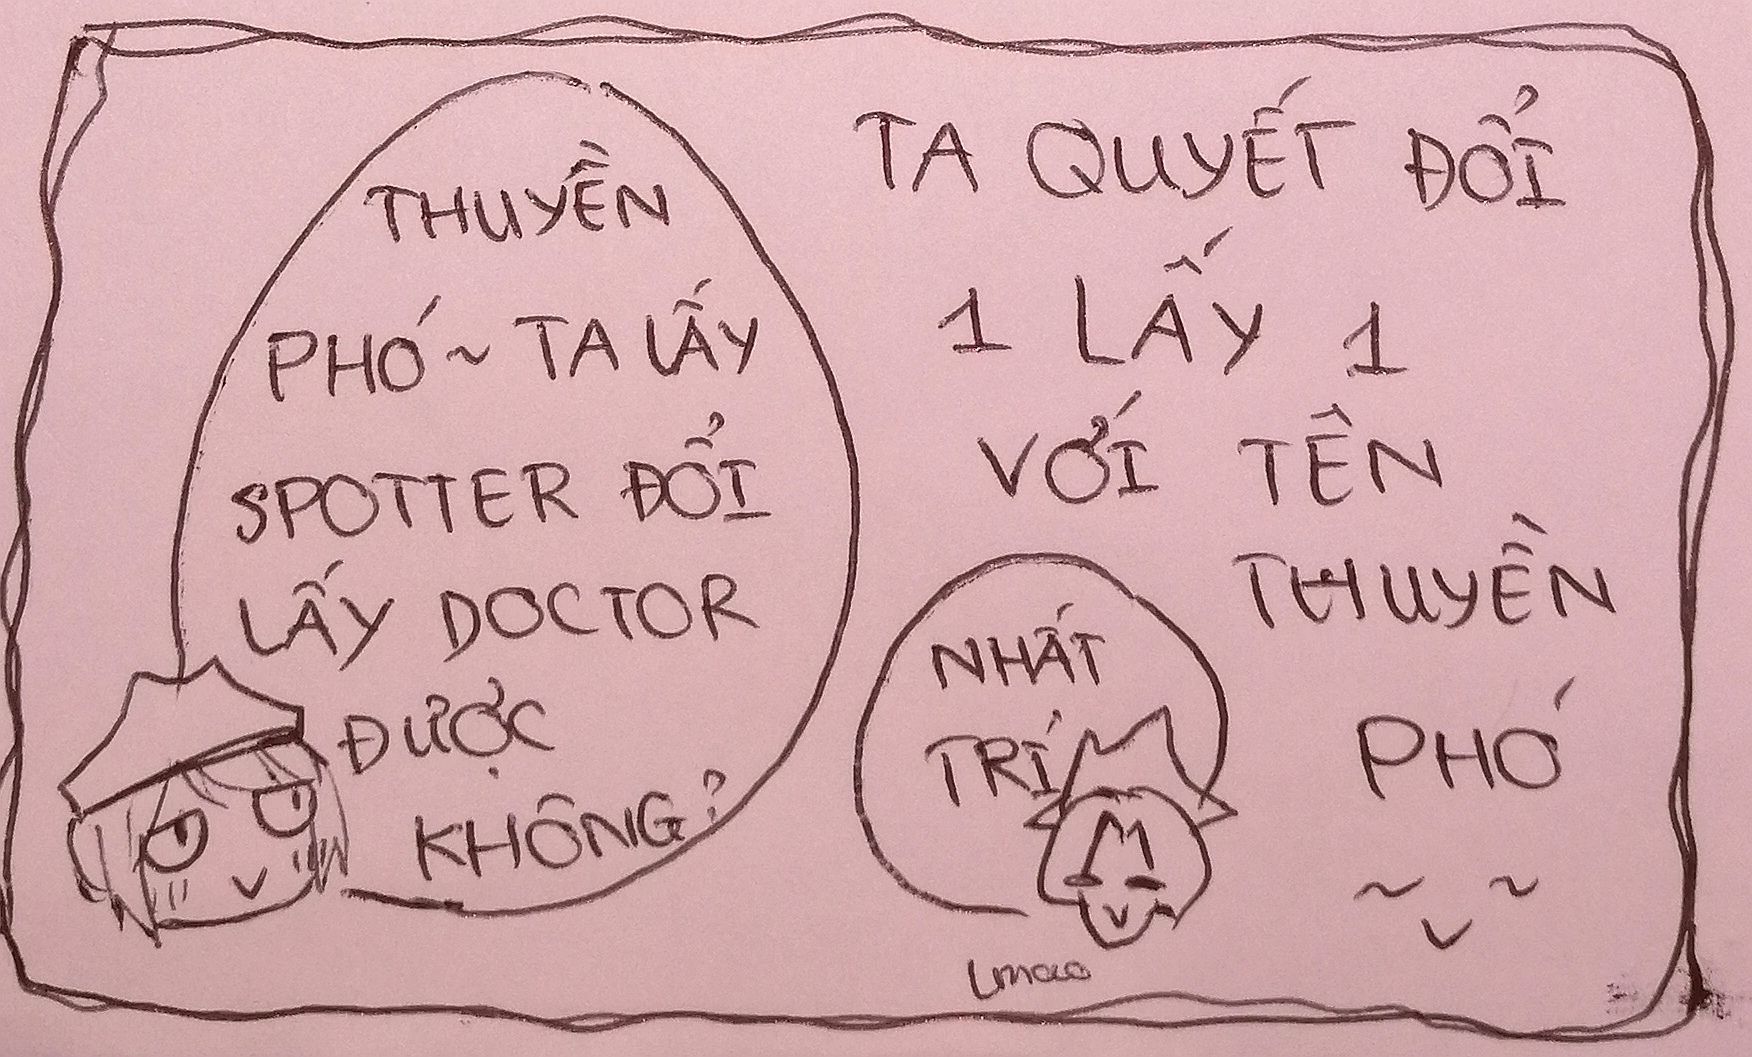 THUYỀN
PHÓ ~ TA LẤY
SPOTTER ĐỔI
LẤY DOCTOR
ĐƯỢC
KHÔNG?
TA QUYẾT ĐỔI
1 LẤY 1
VỚI TÊN
THUYỀN
PHÓ
NHẤT
TRÍ
Lmao